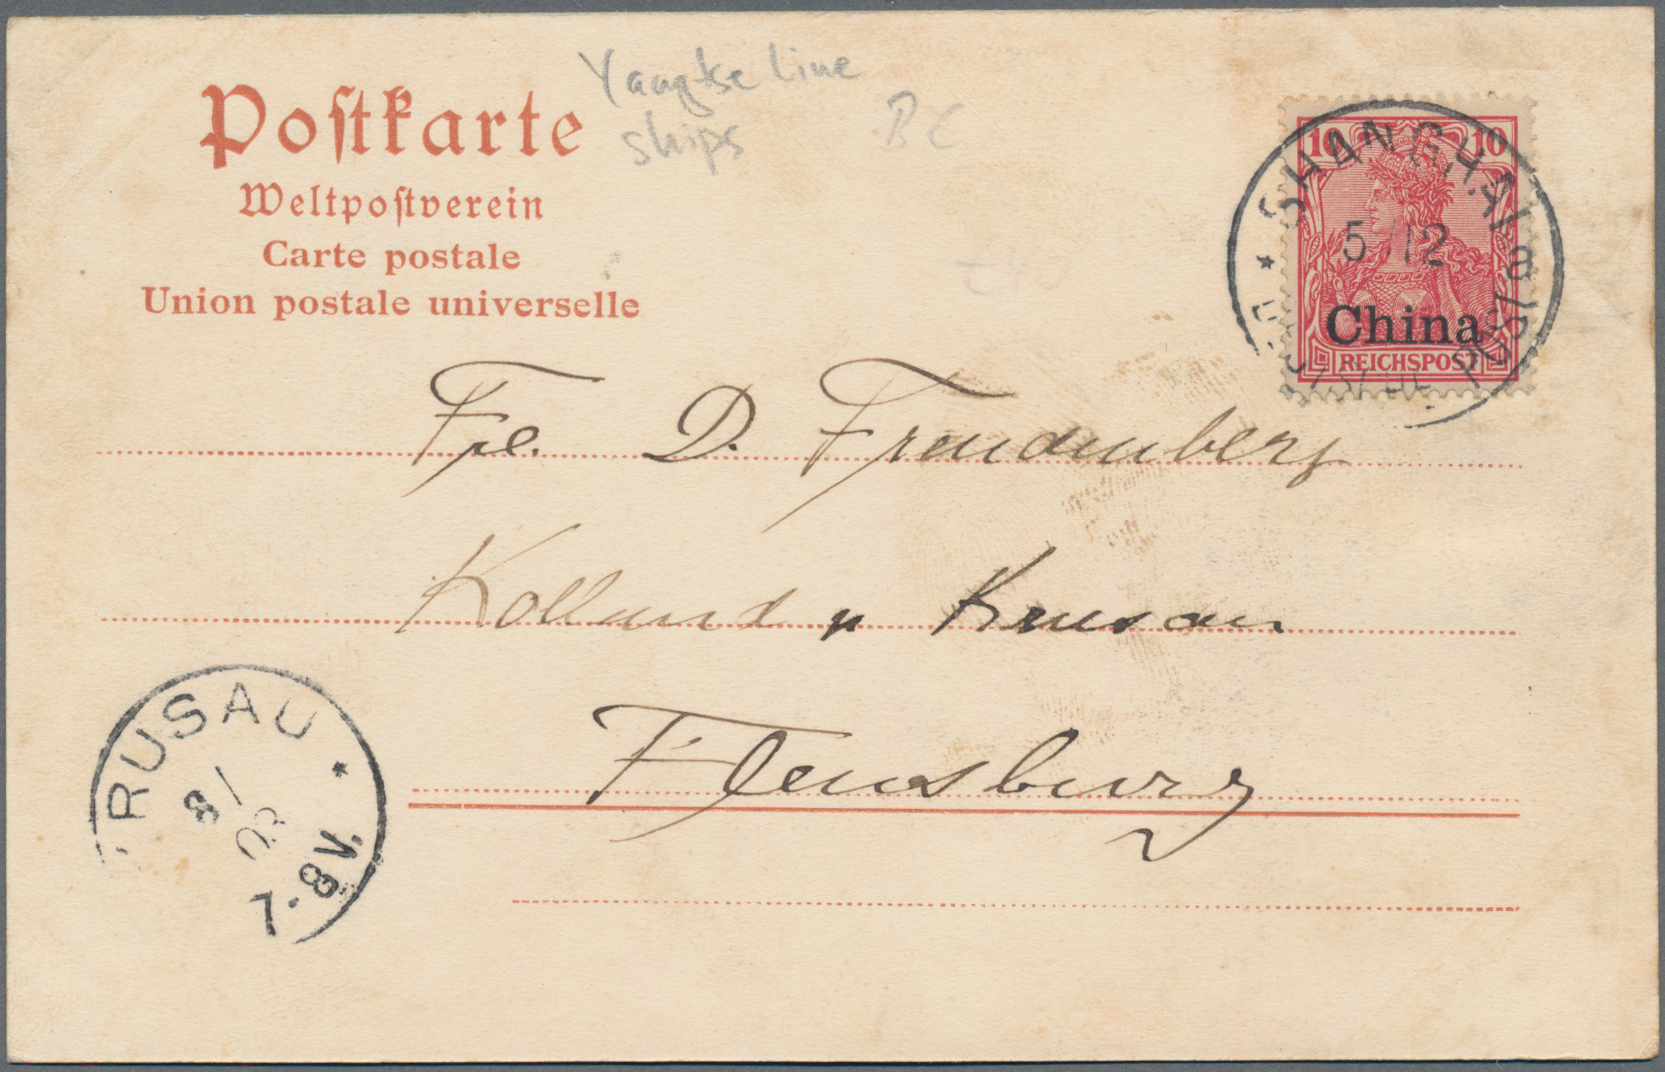 Postkarte
Weltpostverein
Carte postale
Union postale universelle
Yangtse Line
ships
BC
10 10
China
REICHSPOST
SHANGHAI
5/12
Frl. D. Freudenberg
Kolland p Krusau
Flensburg
KRUSAU
8/1
03
7-8V.